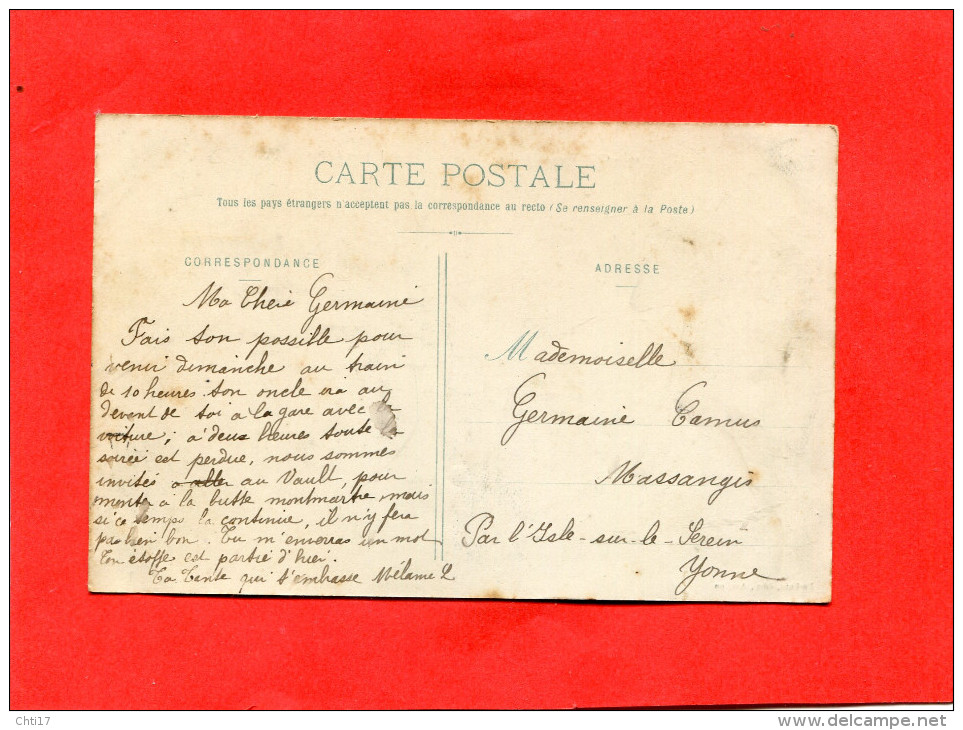 CARTE POSTALE
Tous les pays étrangers n'acceptent pas la correspondance au recto (Se renseigner à la Poste)
CORRESPONDANCE
Ma Cheie Germaine
Fais ton possible pour
venir dimanche au train
de 10 heures ton oncle ira au
devant de toi a la gare avec la
voiture ; a deux heures toute la
soirée est perdue, nous sommes
invités a aller au Vault, pour
monter à la butte montmartre, mais
si ce temps la continue, il n'y fera
pas bon. Tu m'enverras un mot
Ton étoffe est partie d'hier.
Ta Tante qui t'embrasse Mélanie L
ADRESSE
Mademoiselle
Germaine Camus
Massangis
Par l'Isle-sur-le-Serein
Yonne
Chti17
http://www.delcampe.net